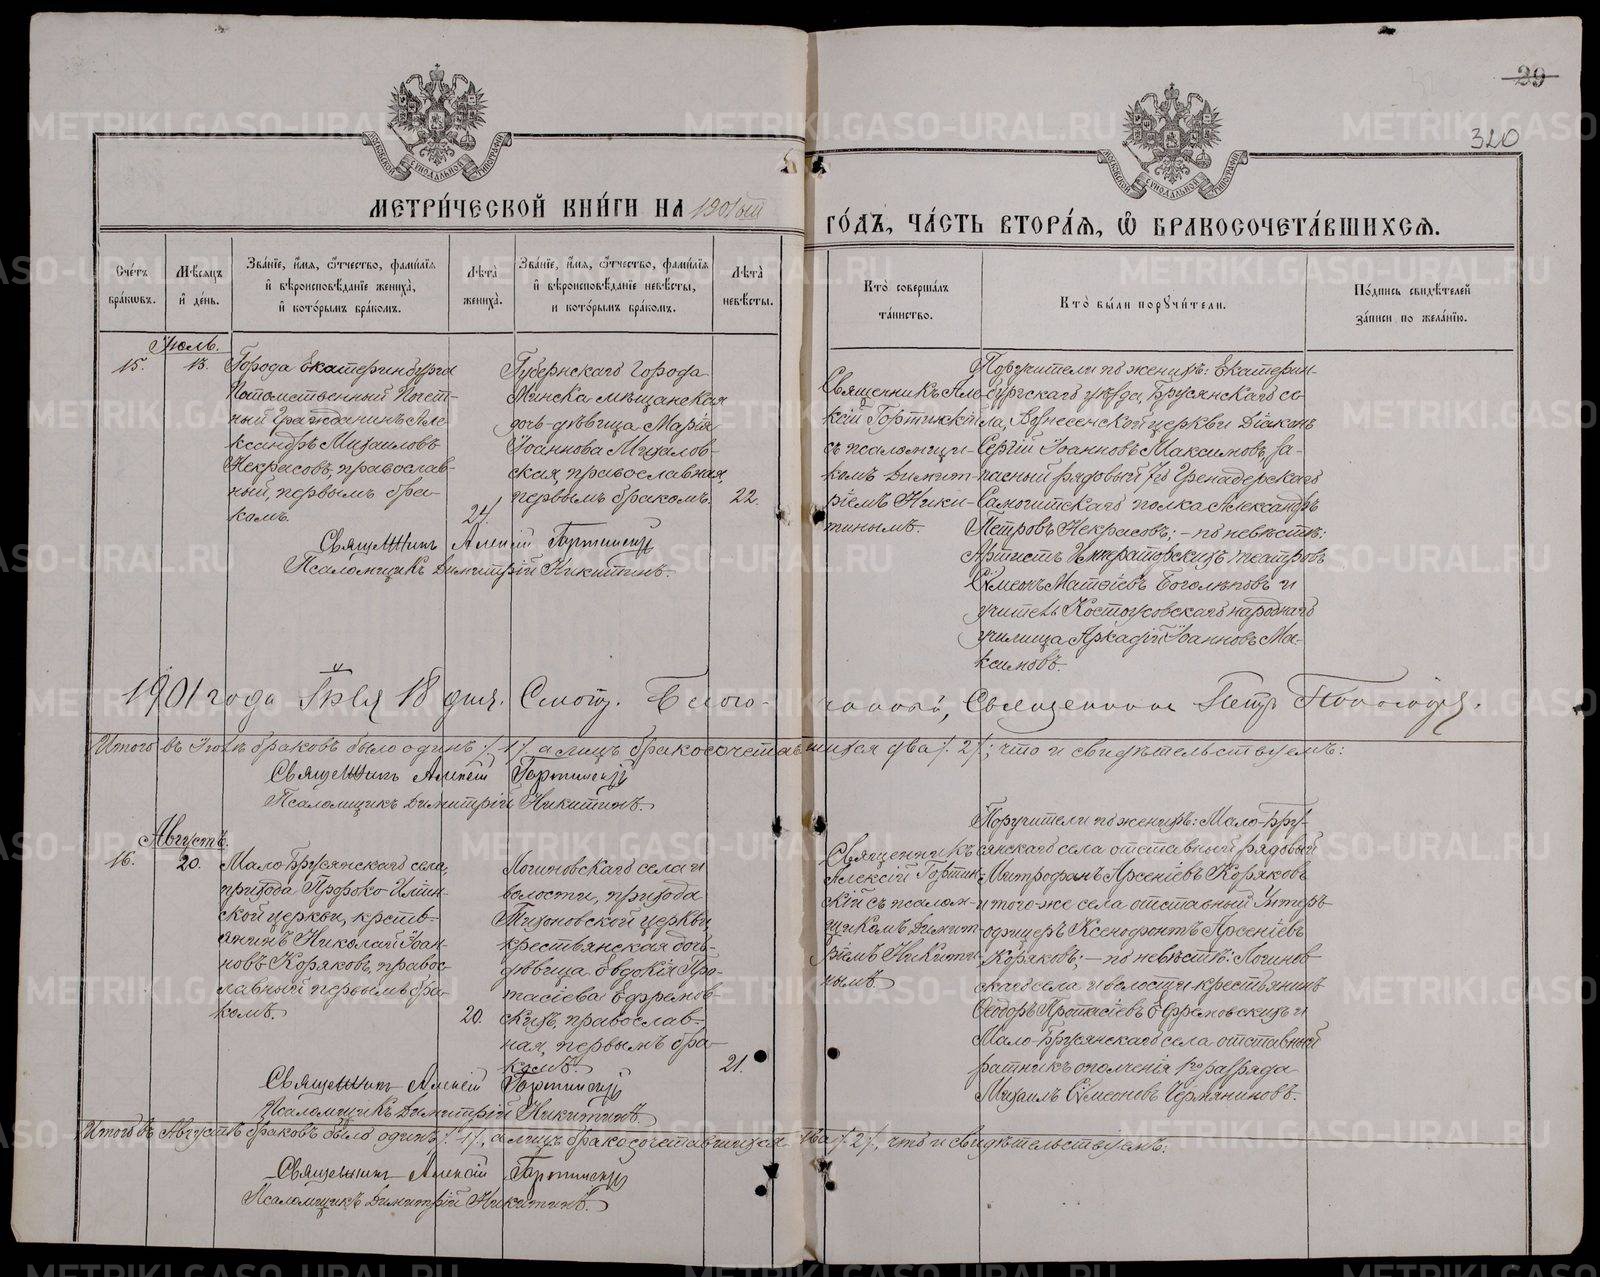 39
320
МОСКОВСКОЙ СѴНОДАЛЬНОЙ ТИПОГРАФІИ
МОСКОВСКОЙ СѴНОДАЛЬНОЙ ТИПОГРАФІИ
МЕТРИ́ЧЕСКОЙ КНИ́ГИ НА 1901ый
ГО́ДЪ, ЧА́СТЬ ВТОРА́Я, Ѿ БРАКОСОЧЕТА́ВШИХСЯ.
Сче́тъ
бра́ковъ.
Мѣ́сяцъ
и҆ де́нь.
Зва́нїе, и҆́мя, ѻ҆́тчество, фами́лїя
и҆ вѣроисповѣ́данїе жениха̀,
и҆ кото́рымъ бра́комъ.
Лѣта̀
жениха̀.
Зва́нїе, и҆́мя, ѻ҆́тчество, фами́лїя
и҆ вѣроисповѣ́данїе невѣ́сты,
и҆ кото́рымъ бра́комъ.
Лѣта̀
невѣ́сты.
Кто̀ соверша́лъ
та́инство.
Кто̀ бы́ли поручи́тели.
По́дпись свидѣ́телей
за́писи по жела́нїю.
Іюль.
15.
13.
Города Екатеринбурга
Потомственный Почет-
ный Гражданинъ Але-
ксандръ Михаиловъ
Некрасовъ, православ-
ный, первымъ бра-
комъ.
24.
Губернскаго города
Минска мѣщанская
дочь-дѣвица Марія
Іоаннова Мигалов-
ская, православная,
первымъ бракомъ.
22.
Священникъ Але-
ксій Гортинскій
съ псаломщи-
комъ Димит-
ріемъ Ники-
тинымъ.
Поручители по женихѣ: Екатерин-
бургскаго уѣзда, Брусянскаго се-
ла, Вознесенской церкви Діаконъ
Сергій Іоанновъ Максимовъ, за-
пасный рядовый 7го Гренадерскаго
Самогитскаго полка Александръ
Петровъ Некрасовъ; - по невѣстѣ:
Артистъ Императорскихъ театровъ
Сѵмеонъ Матѳіевъ Боголюбовъ и
учитель Костоусовскаго народнаго
училища Аркадій Іоанновъ Ма-
ксимовъ.
Священникъ Алексій Гортинскій
Псаломщикъ Димитрій Никитинъ.
1901 года Іюля 18 дня. Смотр. Благо-
чинный, Священникъ Петръ
Итого въ Іюлѣ браковъ было одинъ /. 1 /. а лицъ бракосочетавшихся два /. 2 /.; что и свидѣтельствуемъ:
Священникъ Алексій Гортинскій
Псаломщикъ Димитрій Никитинъ.
Августъ.
16.
20.
Мало-Брусянскаго села,
прихода Пророко-Илiин-
ской церкви, кресть-
янинъ Николай Іоан-
новъ Коряковъ, правос-
лавный первымъ бра-
комъ.
20.
Логиновскаго села и
волости, прихода
Тихоновской церкви,
крестьянская дочь-
дѣвица Евдокія Про-
тасіева Ефремов-
скихъ, православ-
ная, первымъ бра-
комъ.
21.
Священникъ
Алексій Гортин-
скій съ псалом-
щикомъ Димит-
ріемъ Никити-
нымъ.
Поручители по женихѣ: Мало-Бру-
сянскаго села отставный рядовый
Митрофанъ Арсеніевъ Коряковъ
и того-же села отставный Унтеръ-
офицеръ Ксенофонтъ Арсеніевъ
Коряковъ; - по невѣстѣ: Логинов-
скаго села и волости крестьянинъ
Ѳеодоръ Протасіевъ Ефремовскихъ и
Мало-Брусянскаго села отставный
ратникъ ополченія 1го разряда
Михаилъ Сѵмеоновъ Черняниновъ.
Священникъ Алексій Гортинскій
Псаломщикъ Димитрій Никитинъ.
Итого въ Августѣ браковъ было одинъ /. 1 /., а лицъ бракосочетавшихся два /. 2 /., что и свидѣтельствуемъ:
Священникъ Алексій Гортинскій
Псаломщикъ Димитрій Никитинъ.
METRIKI.GASO-URAL.RU